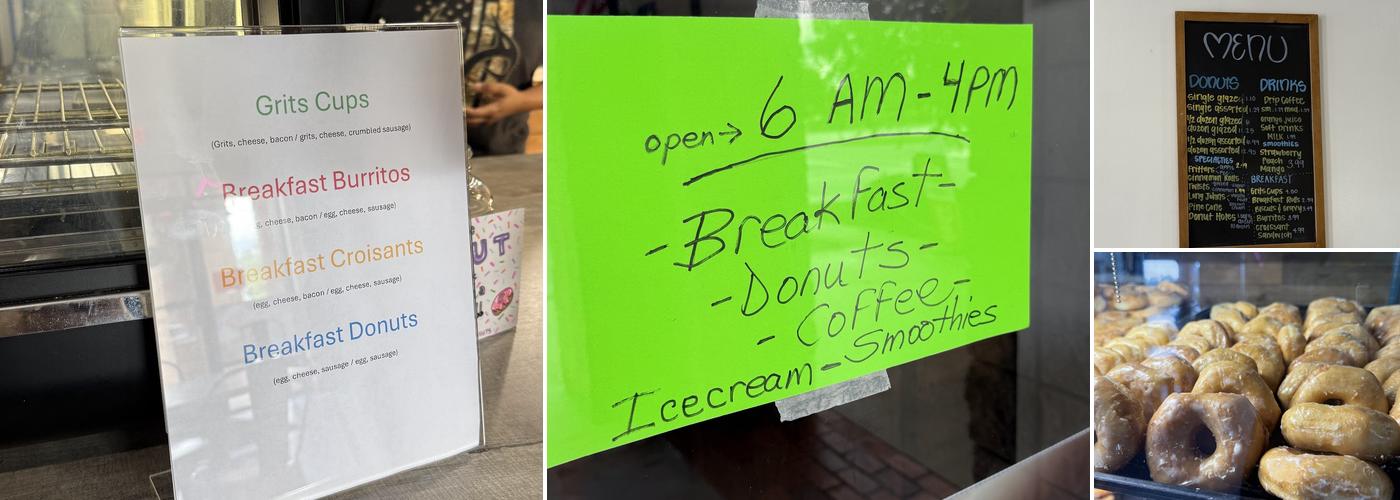 Grits Cups
(Grits, cheese, bacon / grits, cheese, crumbled sausage)
Breakfast Burritos
cheese, bacon / egg, cheese, sausage)
Breakfast Croisants
(egg, cheese, bacon / egg, cheese, sausage)
Breakfast Donuts
(egg, cheese, sausage / egg, sausage)
UT
open→ 6 AM-4PM
-Breakfast-
-Donuts-
-Coffee-
Icecream-Smoothies
MENU
DONUTS
single glazed 1.10
single assorted 1.29
1/2 dozen glazed
dozen glazed
1/2 dozen assorted
dozen assorted
SPECIALTIES
Fritters
Cinnamon Rolls
Twists
Long Johns
Pine Cone
Donut Holes
DRINKS
Drip Coffee
orange juice
Soft drinks
MILK
smoothies
Strawberry
Peach 3.99
Mango
BREAKFAST
Grits Cups 4.00
Breakfast Rolls
Biscuits / Gravy
Burritos 3.99
Croissant
Sandwich 4.99